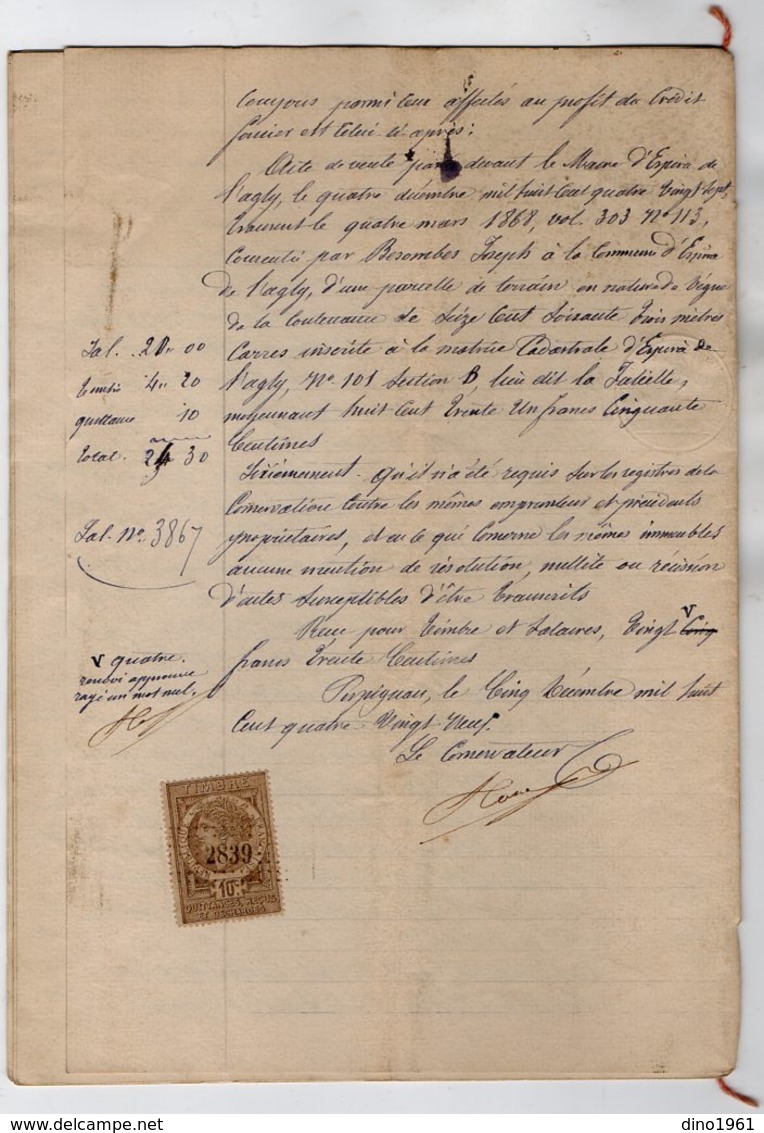 Couyous parmi ceux affectés au profit du Crédit
foncier est celui ci-après:
Acte de vente passé devant le Maire d'Espira de
l'agly, le quatre décembre mil huit cent quatre vingt sept,
transcrit le quatre mars 1868, vol. 303 N° 113,
consenti par Besombes Joseph à la Commune d'Espira
de l'agly, d'une parcelle de terrain en nature de vigne
de la contenance de Seize Cent Soixante trois mètres
Carrés inscrite à la matrice Cadastrale d'Espira de
l'agly, N° 101 Section B, lieu dit la
moyennant huit Cent Trente Un francs Cinquante
Centimes
Sal. 20 00
Timbre 4 20
quittance 10
total. 24 30
Sal. N° 3867
Sixièmement - qu'il n'a été requis sur les registres de la
Conservation contre les mêmes emprunteur et précédents
propriétaires, et en ce qui concerne les mêmes immeubles
aucune mention de résolution, nullité ou récision
d'actes susceptibles d'être transcrits
Reçu pour Timbre et Salaires, Vingt V Cinq
francs Trente Centimes
V quatre.
renvoi approuvé
rayé un mot nul.
Perpignan, le Cinq Décembre mil huit
Cent quatre Vingt Neuf.
Le Conservateur
TIMBRE
2839
10c
QUITTANCES, REÇUS
ET DÉCHARGES
dino1961